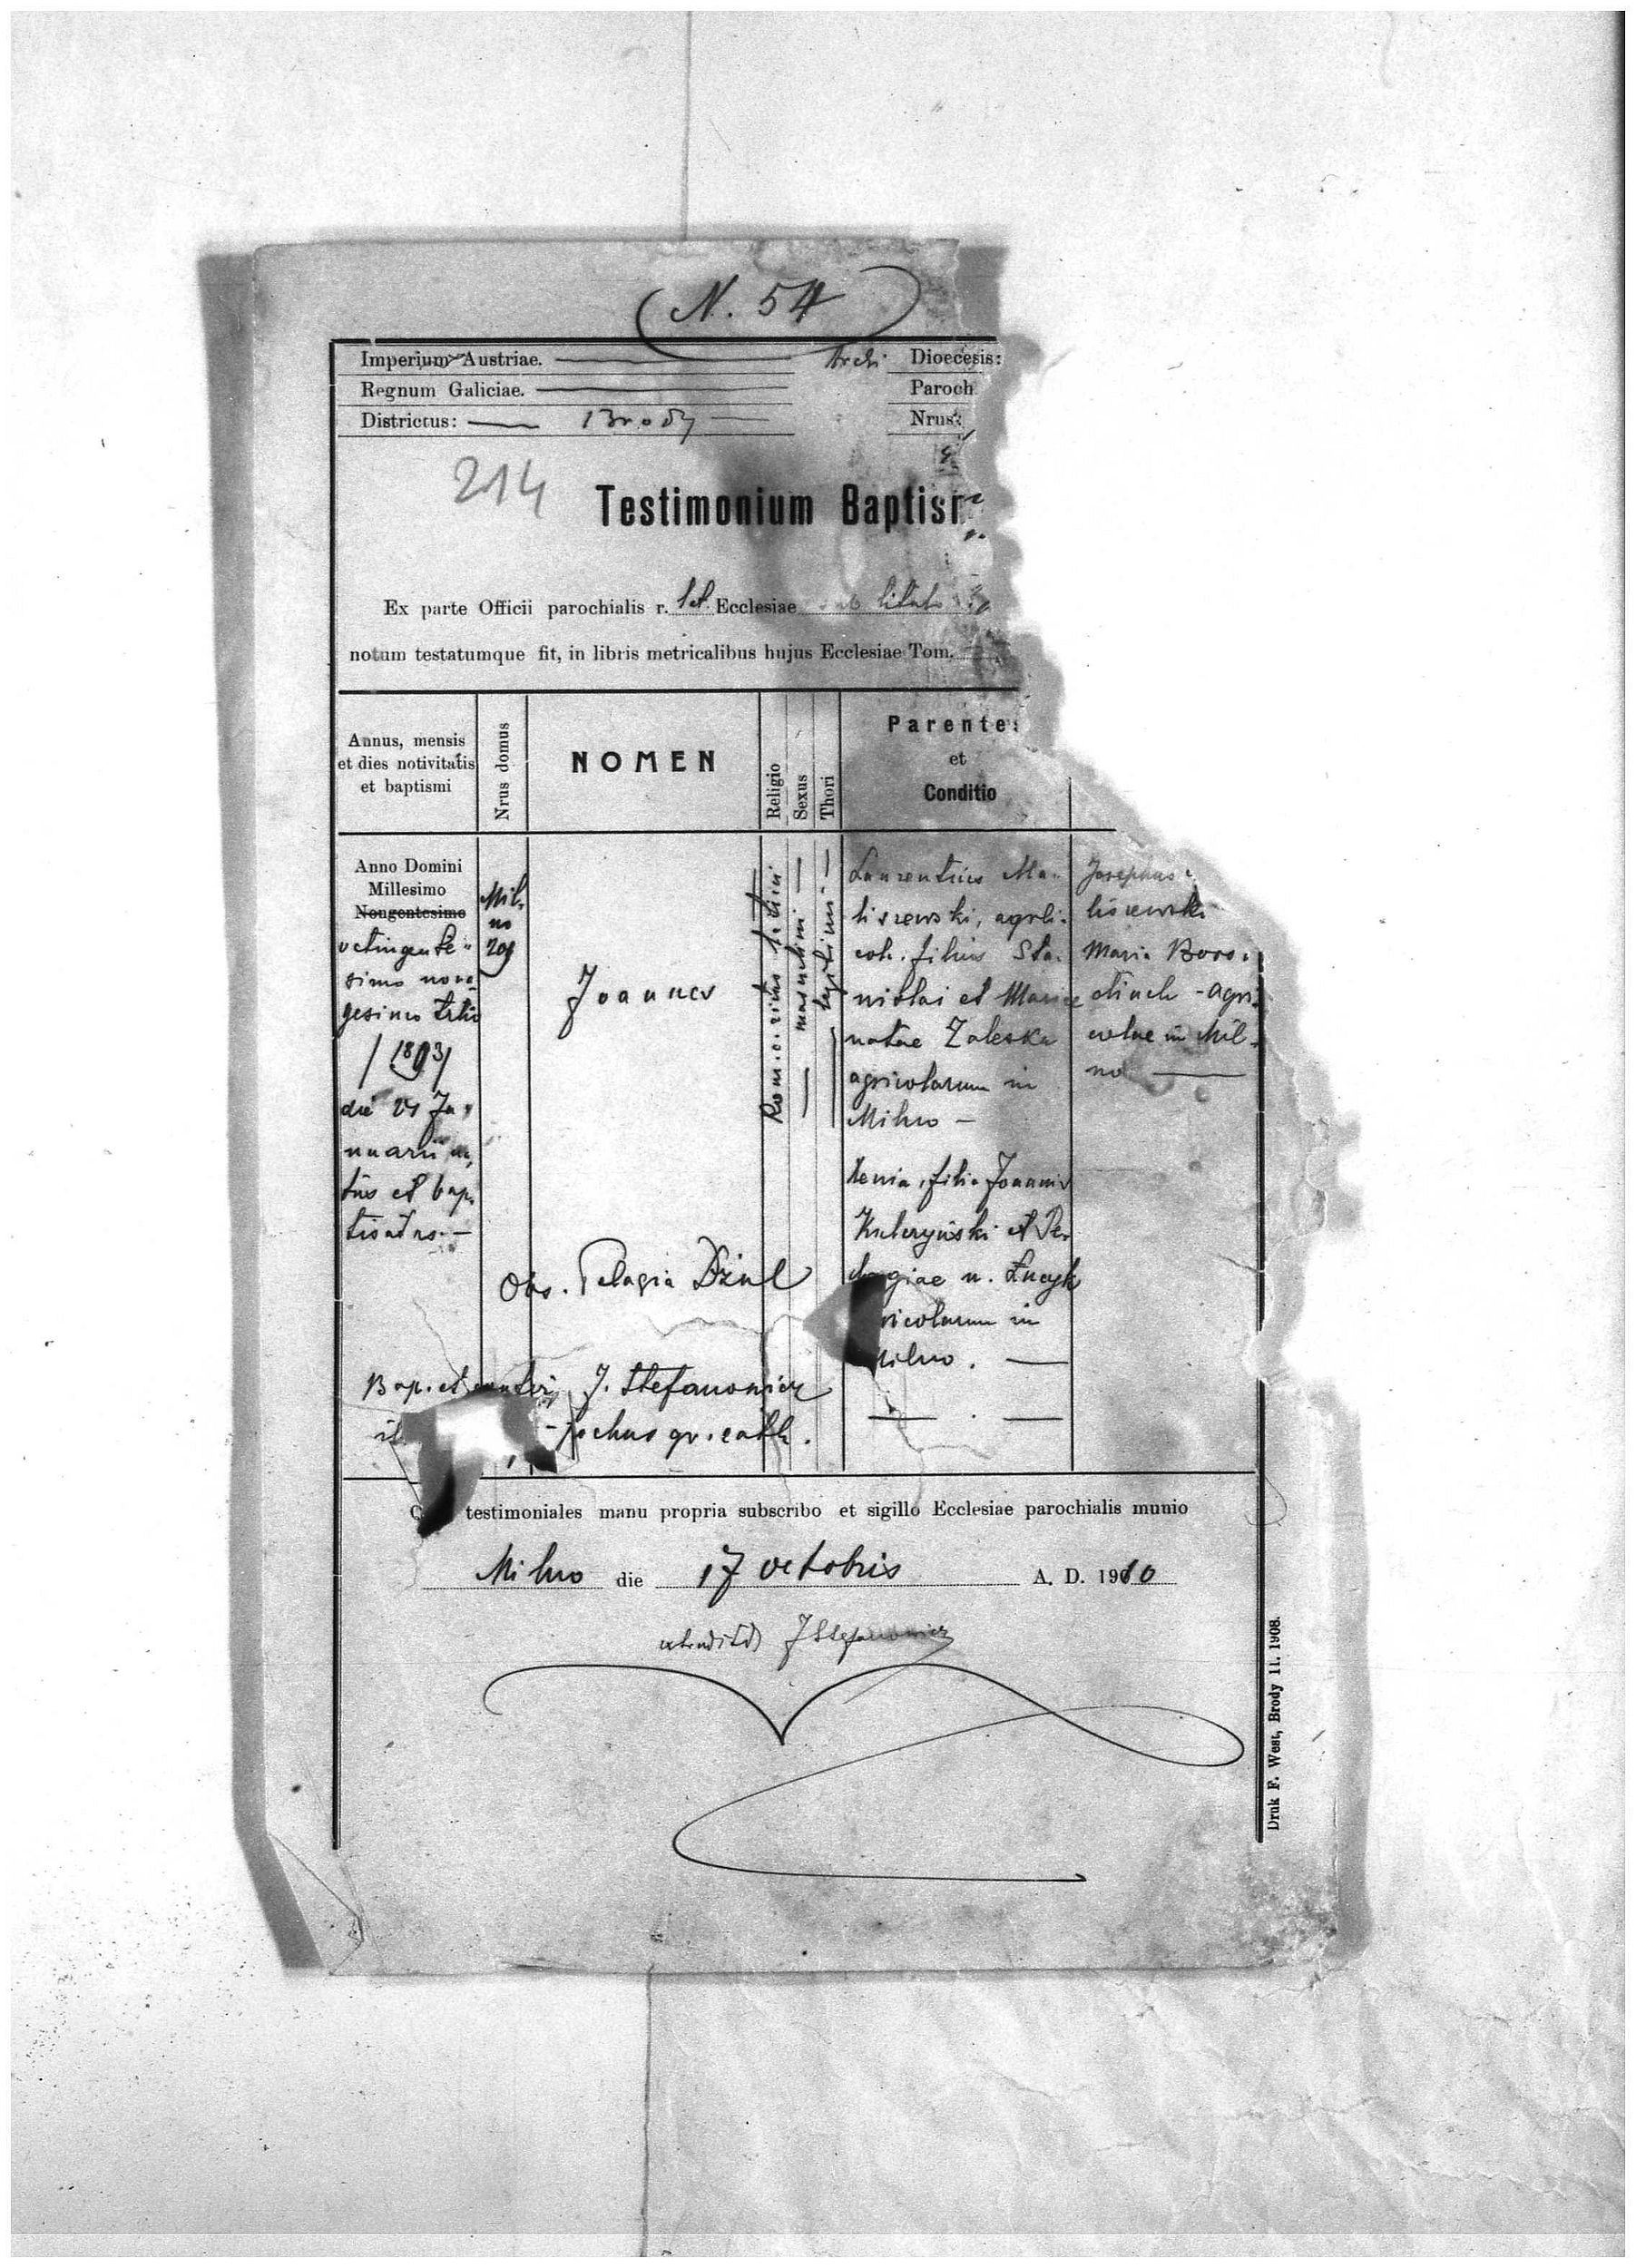 (N. 54
Imperium Austriae. Archi Dioecesis:
Regnum Galiciae. Paroch
Districtus: Brody Nrus
214
Testimonium Baptis
Ex parte Officii parochialis r. lat. Ecclesiae sub titulo
notum testatumque fit, in libris metricalibus hujus Ecclesiae Tom.
Annus, mensis
et dies notivitatis
et baptismi
Nrus domus
NOMEN
Religio
Sexus
Thori
Parente
et
Conditio
Anno Domini
Millesimo
Nongentesimo
octingente-
simo nona-
gesimo
/1893/
die 24 Ja-
nuarii na-
tus et bap-
tisatus.—
Mil-
no
209
Joannes
Rom. c. ritus latini
masculini
legitimi
Laurentius Ma-
liszewski, agri-
col. filius Sta-
nislai et Mariae
natae Zaleska
agricolarum in
Milno —
Xenia, filia Joannis
et Pe-
lagiae n. Łucyk
ricolarum in
Milno. —
Josephus
liszewski
Maria Boro-
diuch - agri-
colae in Mil-
no —
Obs. Pelagia Dziul
Bap. et J. Stefanowicz
parochus gr. cath.
testimoniales manu propria subscribo et sigillo Ecclesiae parochialis munio
Milno die 17 octobris A. D. 1910
J Stefanowicz
Druk F. West, Brody 11. 1908.